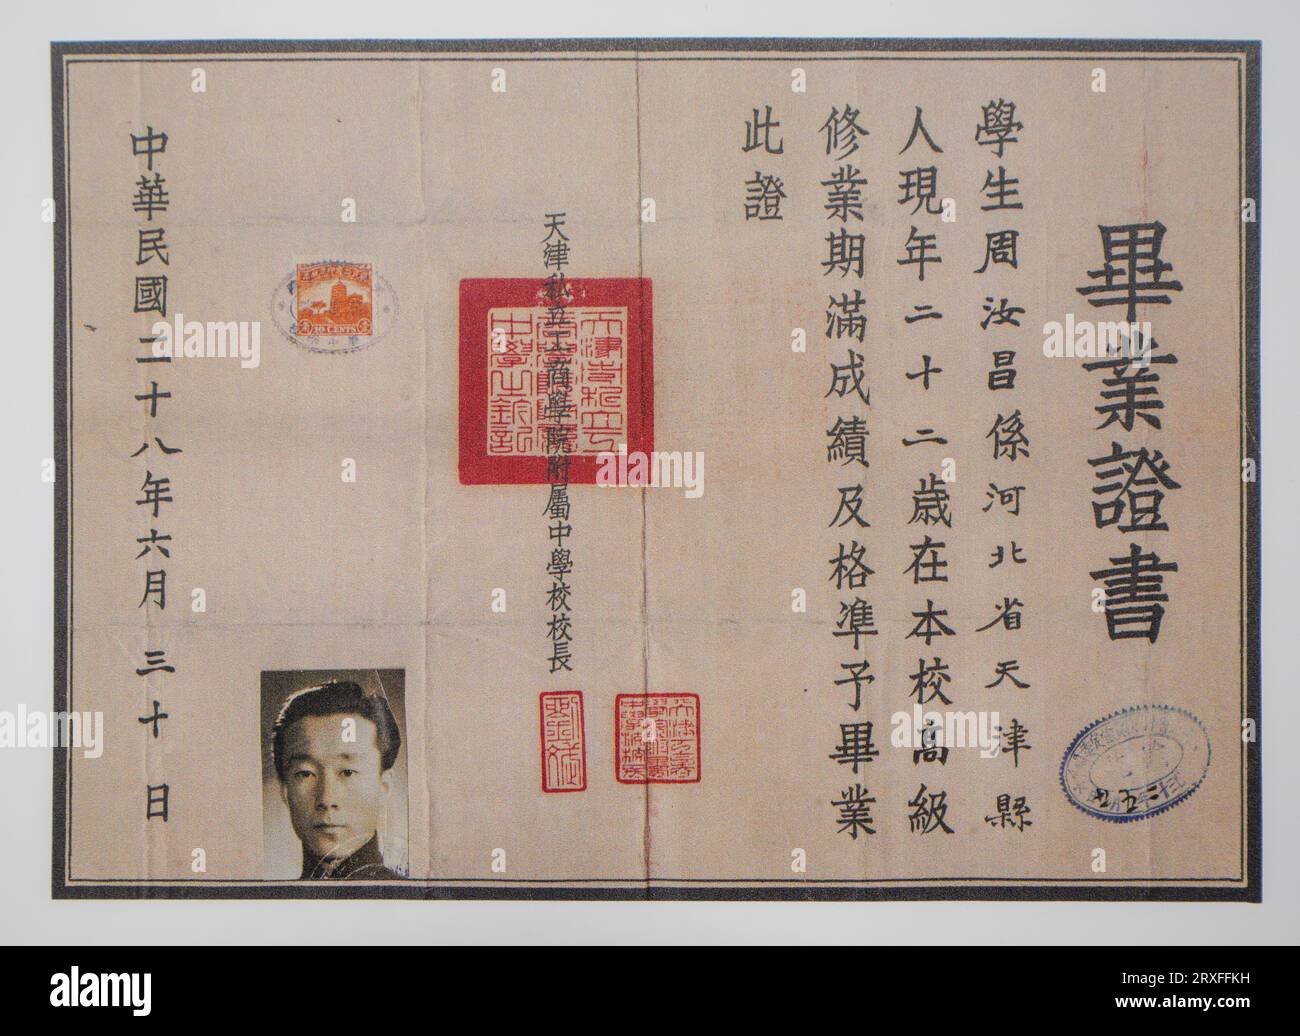 畢業證書
學生周汝昌係河北省天津縣
人現年二十二歲在本校高級
修業期滿成績及格準予畢業
此證
天津私立工商學院附屬中學校校長
中華民國二十八年六月三十日
10 CENTS
alamy
Image ID: 2RXFFKH
www.alamy.com